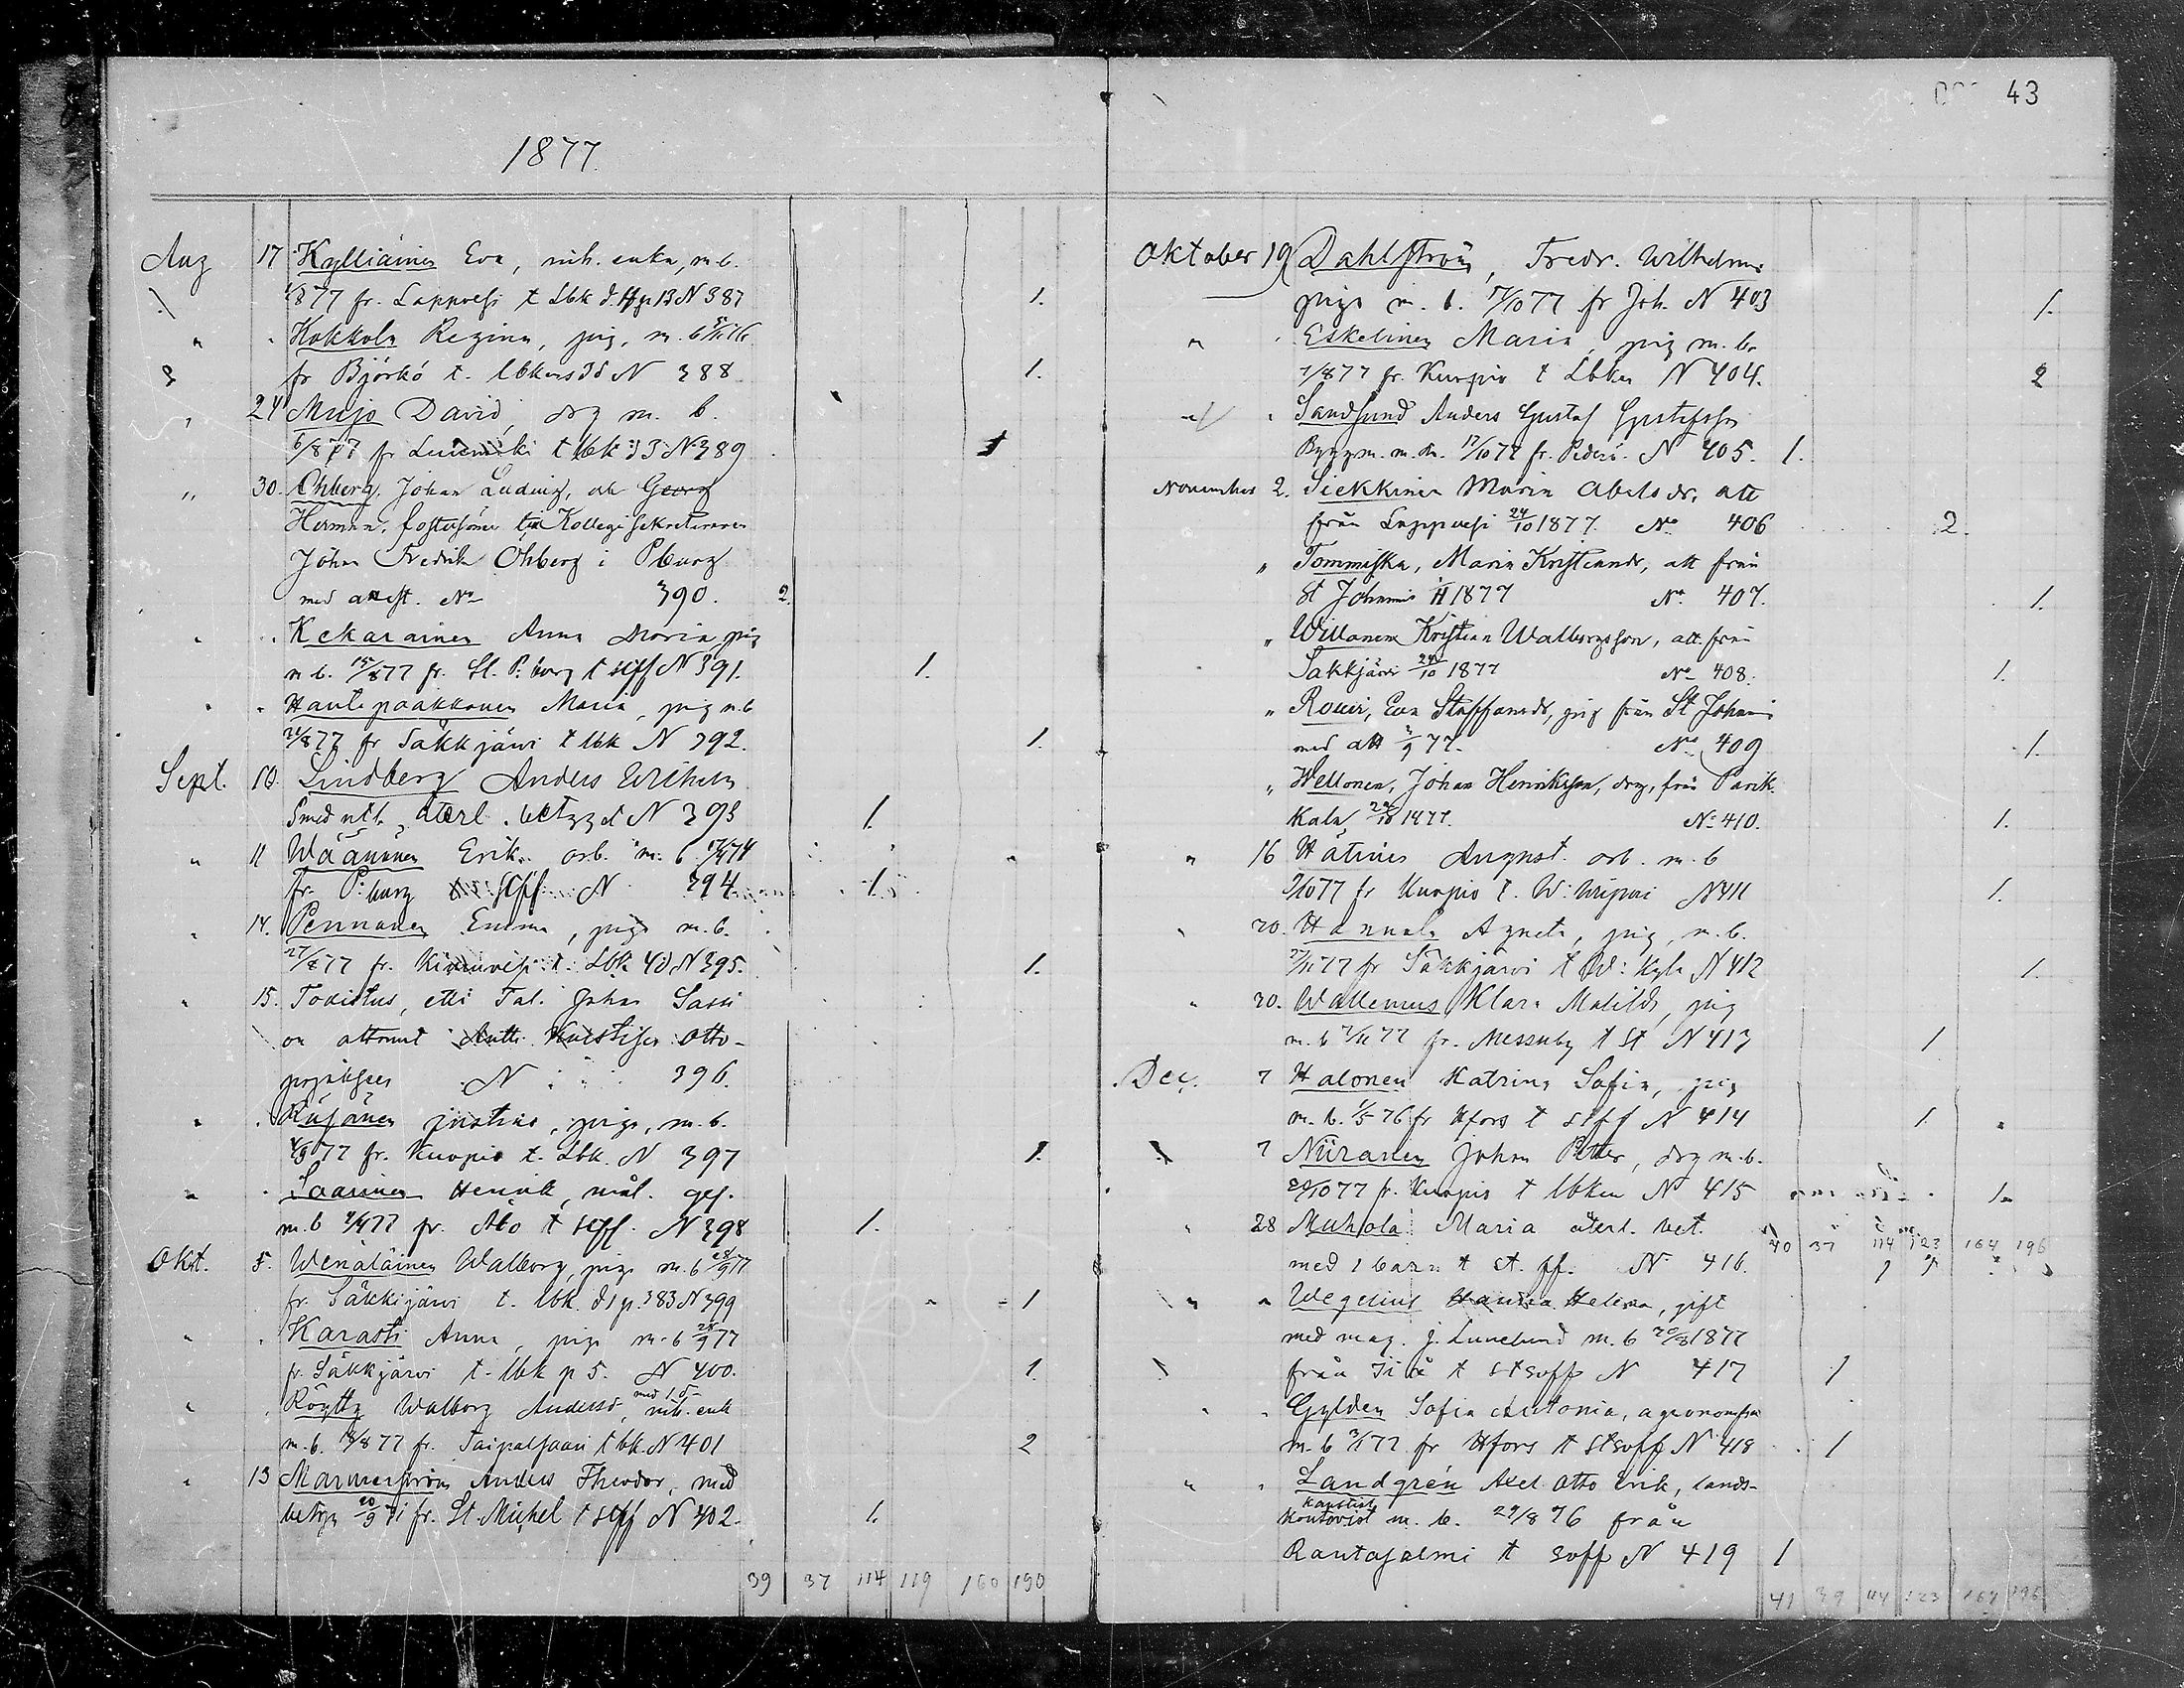 43
1877.
Aug 17 Kylliäinen Eva, enka, m.b.
1/8 77 fr. Lappvesi t Lbk N 387 1.
" Kokkola Regina, pig, m. b
fr Björkö t. lbkens N 388 1.
" 24 Mujo David, drg m. b.
6/8 77 fr t lbk 33 N 389 1
" 30. Ohberg, Johan Ludvig, och Georg
Herman, fostersöner till Kollegisekreteraren
Johan Fredrik Ohberg i Pburg
med attest. No 390. 2.
" Kekarainen Anna Maria pig
m b. 15/8 77 fr. St. P:burg t stff N 391. 1.
" Hautapaakkanen Maria, pig m.b
21/8 77 fr Säkkjärvi t lbk N 392. 1.
Sept. 10. Lindberg Anders Wilhelm
Smed återl. betyget N 393 1.
" 11 Wäänänen Erik arb. m. b
fr. P:burg stff N 394 1.
" 14. Pennanen Emma, piga m. b.
27/8 77 fr. t. Lbk 40 N 395. 1.
" 15. Todistus, että Tal. Johan Sassi
on ottanut Antti Otto-
pojaksen N 396.
" . Justina, piga, m. b.
4/9 77 fr. Kuopio t. Lbk. N 397 1.
" . Saarinen Henrik, mål. ges.
m. b 77 fr. Åbo t stff. N 398 1.
Okt. 5. Wenäläinen Walborg, piga m. b 28/9 77
fr. Säkkijärvi t. lbk. p. 383 N 399 1
" . Karasti Anna, piga m. b 28/9 77
fr. Säkkjärvi t. lbk p 5. N 400. 1
" . Röytty Walborg Andersd, med 1 d. enk
m. b. 18/8 77 fr. Taipalsaari t lbk. N 401 2
" 13 Marmerström Anders Theodor, med
betyg 20/9 fr. St. Michel t stff N 402. 1.
39 37 114 119 160 190
Oktober 19 Dahlström, Fredr. Wilhelmina
piga m. b. 17/10 77 fr Joh. N 403 1.
" . Eskelinen Maria, pig m. b.
7/8 77 fr. Kuopio t Lbken N 404. 2
" . Sandsund Anders Gustaf Gustafsson
Byggm. m. b. 17/10 77 fr. Pederö. N 405. 1.
November 2. Siekkinen Maria Abelsdr, att
från Lappvesi 24/10 1877. No 406 2.
" Tommiska, Maria Kristiansdr, att från
St Johannis 1877 No 407. 1.
" Willanen Kristian Walborgsson, att. från
Säkkjärvi 24/10 1877 No 408. 1.
" Rouvi, Eva Staffansdr, pig från St Johannis
med att 2/9 77. No 409 1.
" Wellonen, Johan Henriksson, drg, från Parik-
kala 1877. No 410. 1.
" 16 Hätinen August. arb. m. b
77 fr Kuopio t. W: Wipuri N 411 1.
" 20. Hannula Agneta, pig, m. b.
77 fr Säkkjärvi t W: Kyla N 412 1.
" 20. Wallenius Klara Matilda, pig
m. b 77 fr. Messuby t St N 413 1
Dec. 7 Halonen Katrina Sofia, pig
m. b. 1/5 76 fr Hfors t stff N 414 1.
7 Niiranen Johan Petter, drg m. b.
29/10 77 fr. Kuopio t lbken N 415 1.
" 28 Muhola Maria återl. bet.
40 37 114 123 164 196
med 1 barn t st. ff. N 416. 1 1
" " Wegelius Hanna Helena, gift
med mag. J. Lunelund m. b 20/8 1877
från t stsoff N 417 1
" " Gylden Sofia Antonia, agronomfru
m. b 77 fr Hfors t stsoff N 418 1
" " Landgrén Axel Otto Erik, lands-
kanslist
kontorist m. b. 29/8 76 från
Rantasalmi t soff N 419 1
41 39 114 123 164 196